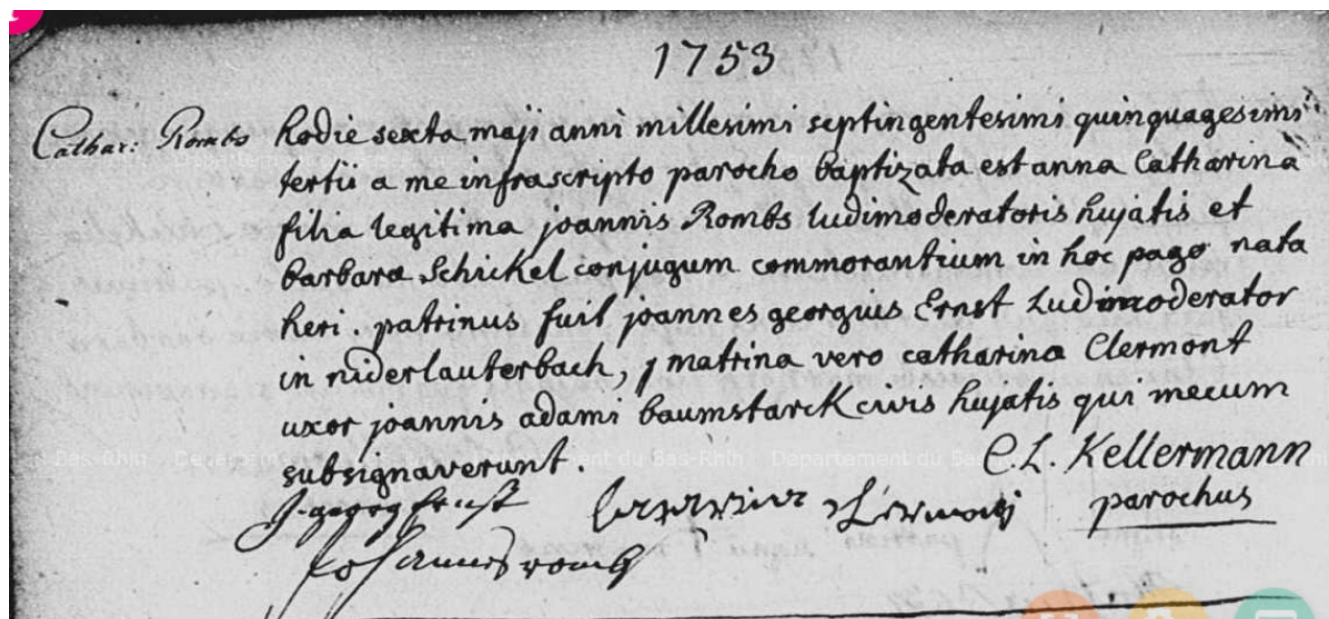 1753
Cathar: Rombs
hodie sexta maji anni millesimi septingentesimi quinquagesimi
tertii a me infrascripto parocho baptizata est anna Catharina
filia legitima joannis Rombs ludimoderatoris hujatis et
barbara Schickel conjugum commorantium in hoc pago nata
heri. patrinus fuit joannes georgius Ernst Ludimoderator
in niderlauterbach, matrina vero catharina Clermont
uxor joannis adami baumstarck civis hujatis qui mecum
subsignaverunt.
C. L. Kellermann
parochus
J. georg Ernst
Johannes romb
Bas-Rhin Département du Bas-Rhin Département du Bas-Rhin